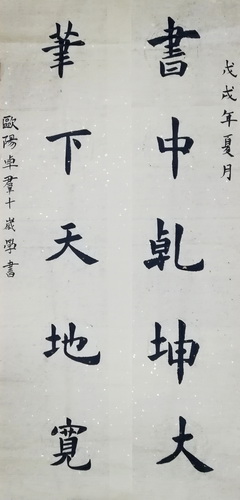 戊戌年夏月
書中乹坤大
筆下天地寛
歐陽卓羣十歲學書